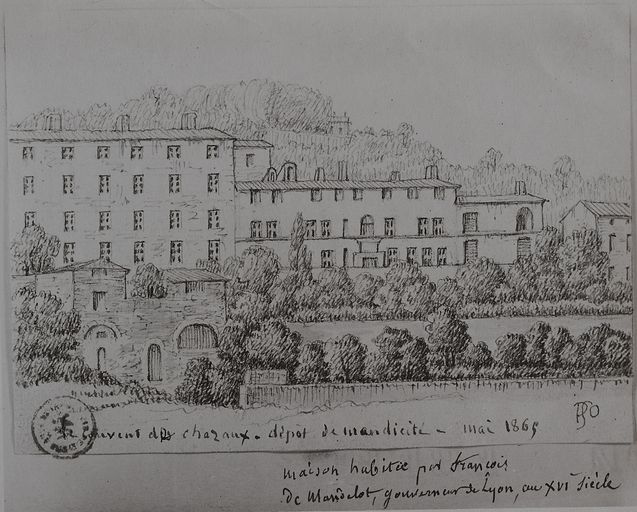 couvent des chazaux - dépot de mandicité - mai 1865
maison habitée par François
de Mandelot, gouverneur de Lyon, au XVI siècle